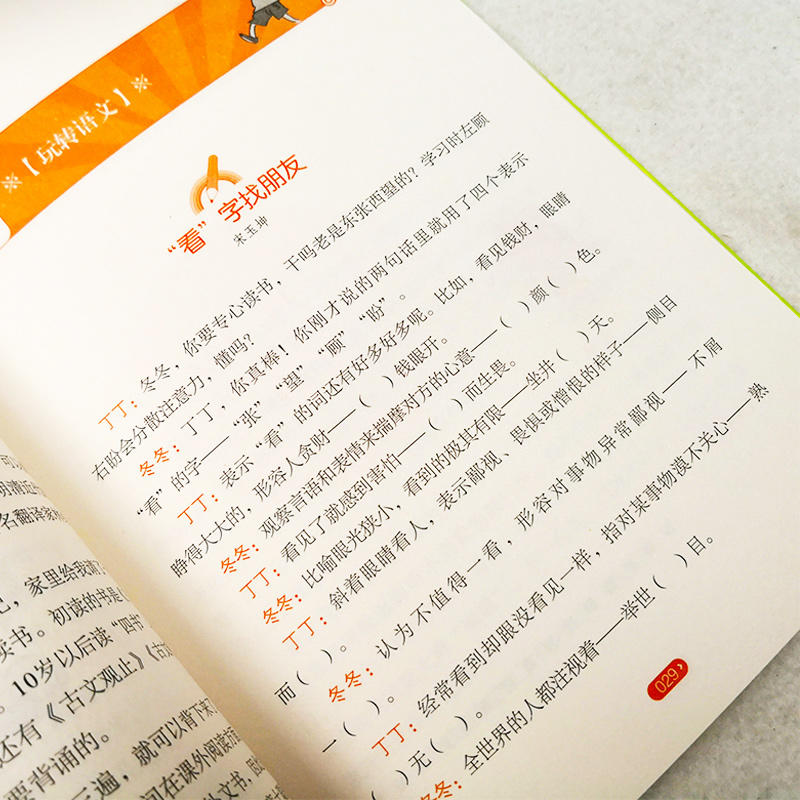 ※【玩转语文】※
“看”字找朋友
宋玉坤
丁丁：冬冬，你要专心读书，干吗老是东张西望的？学习时左顾
右盼会分散注意力，懂吗？
冬冬：丁丁，你真棒！你刚才说的两句话里就用了四个表示
“看”的字——“张”“望”“顾”“盼”。
丁丁：表示“看”的词还有好多好多呢。比如，看见钱财，眼睛
睁得大大的，形容人贪财——（ ）钱眼开。
冬冬：观察言语和表情来揣摩对方的心意——（ ）颜（ ）色。
丁丁：看见了就感到害怕——（ ）而生畏。
冬冬：比喻眼光狭小，看到的极其有限——坐井（ ）天。
丁丁：斜着眼睛看人，表示鄙视、畏惧或憎恨的样子——侧目
而（ ）。
冬冬：认为不值得一看，形容对事物异常鄙视——不屑
一（ ）。
丁丁：经常看到却跟没看见一样，指对某事物漠不关心——熟
（ ）无（ ）。
冬冬：全世界的人都注视着——举世（ ）目。
029
名翻译家
家里给我
读书。初读的书是
10岁以后读“四书
还有《古文观止》《古
要背诵的。
遍，就可以背下来
间在课外阅读